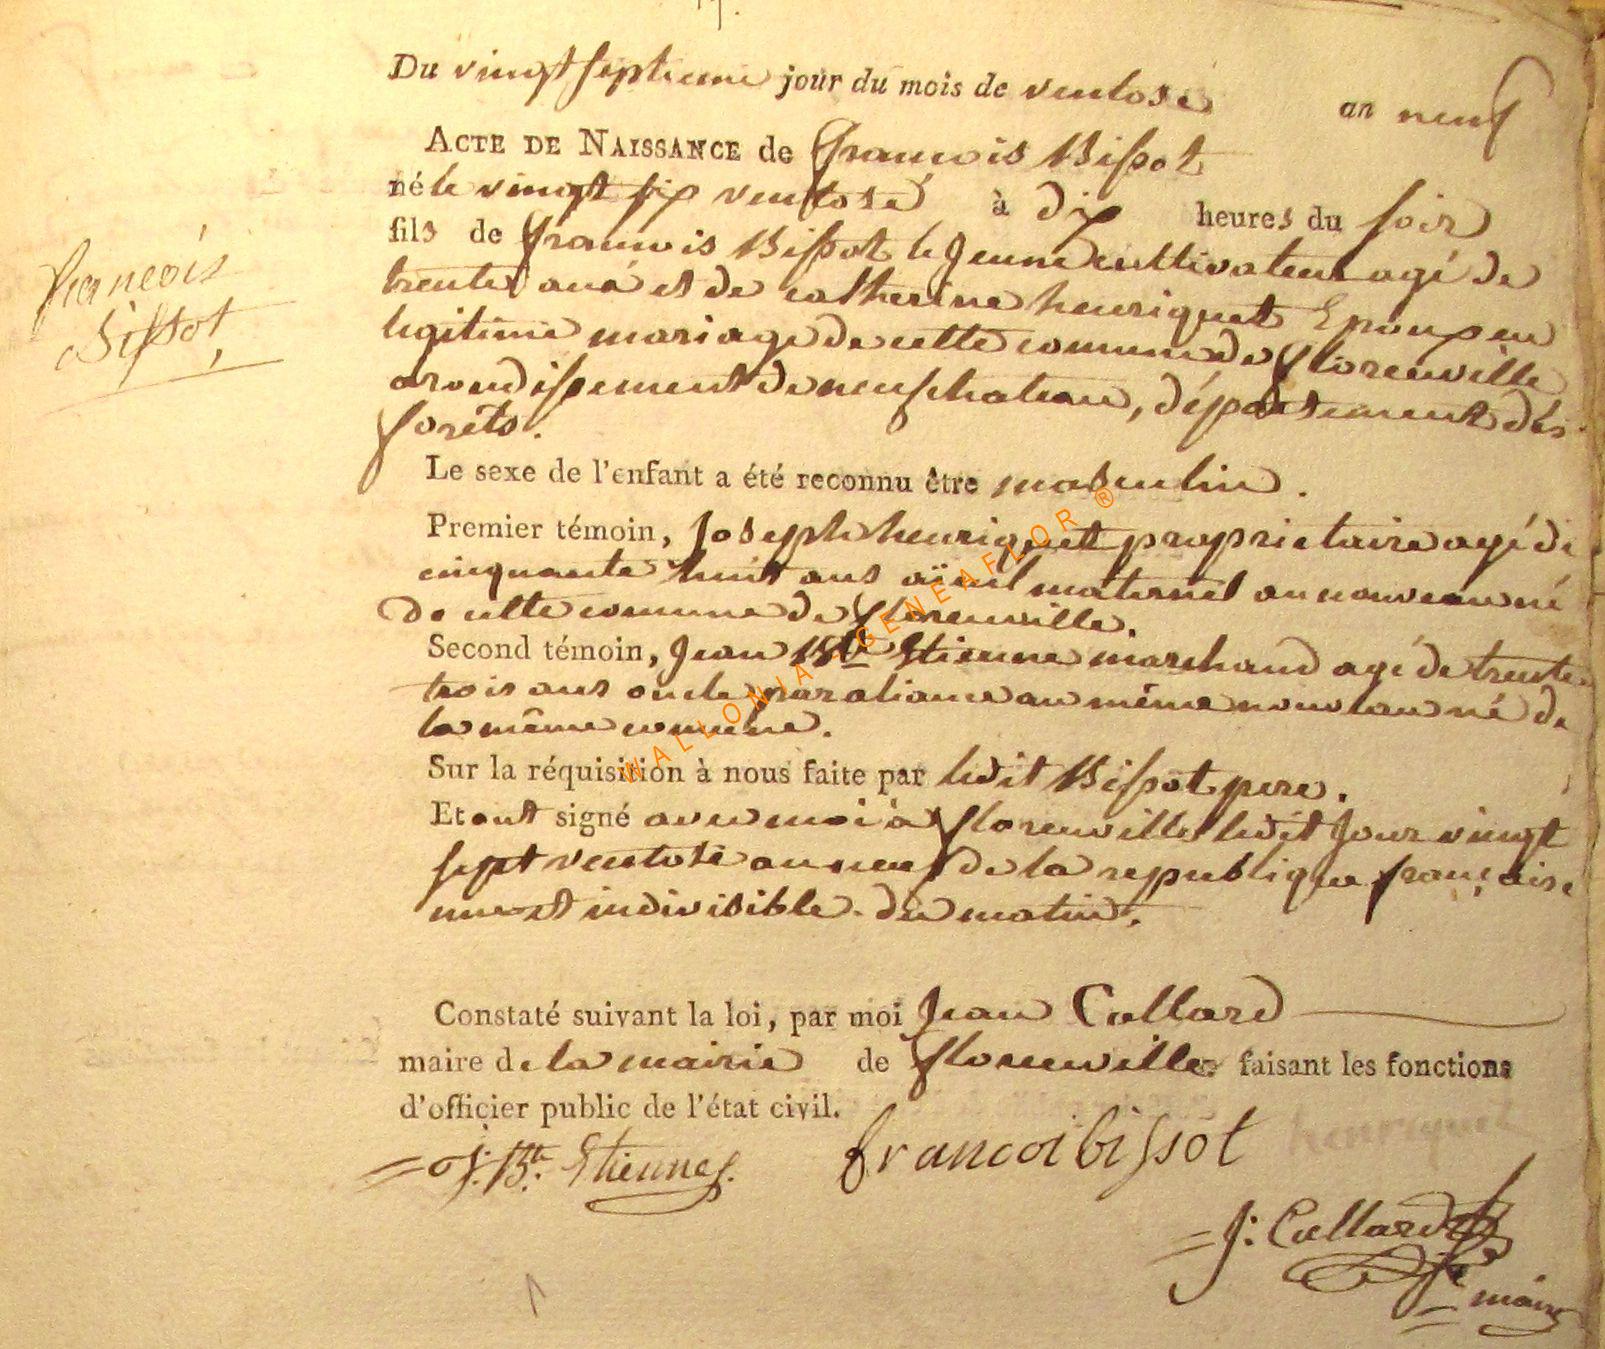 Du vingt septieme jour du mois de ventose an neuf
ACTE DE NAISSANCE de francois Bissot
né le vingt six ventose à dix heures du soir
fils de francois Bissot le jeune cultivateur agé de
trente ans et de catherine henriquet Epoux en
legitime mariage de cette comune de florenville
arondissement de neufchateau, département dés
forêts.
francois
Bissot
Le sexe de l'enfant a été reconnu être masculin.
Premier témoin, Joseph henriquet proprietaire agé de
cinquante huit ans aïeul maternel au nouveau né
de cette comune de florenville.
Second témoin, Jean Bte Etienne marchand agé de trente
trois ans oncle par aliance au même nouveau né de
la même comune.
Sur la réquisition à nous faite par ledit Bissot pere.
Et ont signé avec moi à florenville ledit jour vingt
sept ventose an neuf de la republique française
une et indivisible. du matin.
WALLONIA GENEAFLOR ®
Constaté suivant la loi, par moi Jean Collard
maire de la mairie de florenville faisant les fonctions
d'officier public de l'état civil.
J. Bte Etienne francoi bissot henriquet
J: Collard
maire